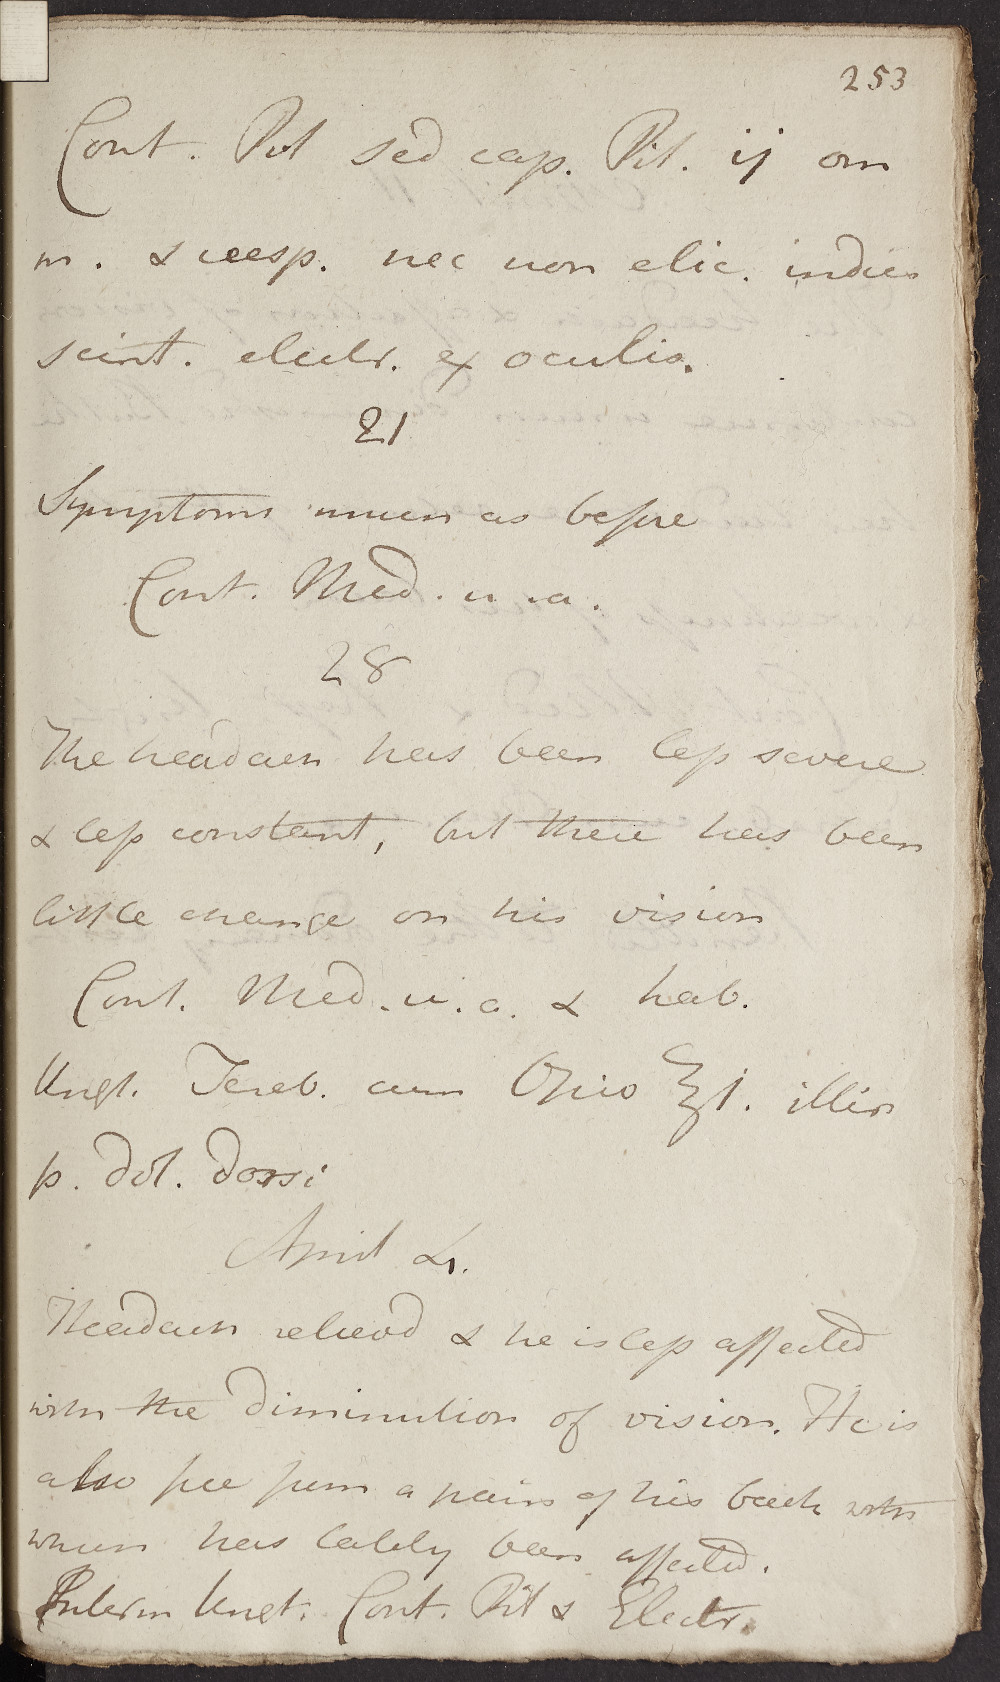 253
Cont. Pil sed cap. Pil. ij om
m. & vesp. nec non elic. indies
scint. electr. ex oculis.
21
Symptoms much as before
Cont. Med. u. a.
28
The headach has been less severe
& less constant, but there has been
little change on his vision
Cont. Med. u. a. & hab.
Ungt. Tereb. cum Opio ℥j. illin
p. dol. dorsi
April 4.
Headach relievd & he is less affected
with the diminution of vision. He is
also free from a pain of his back with
which has lately been affected.
Interm Ungt. Cont. Pil & Electr.